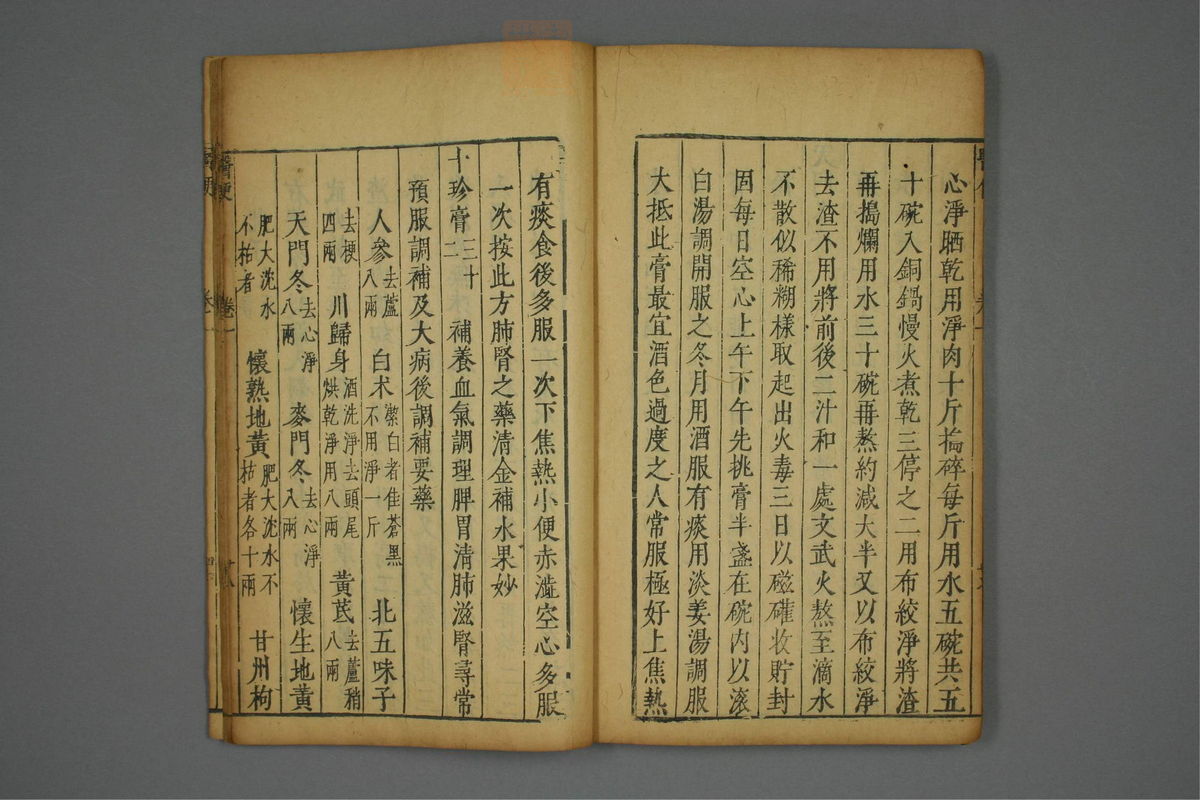 心淨晒乾用淨肉十斤搗碎每斤用水五碗共五
十碗入銅鍋慢火煮乾三停之二用布絞淨將渣
再搗爛用水三十碗再熬約減大半又以布絞淨
去渣不用將前後二汁和一處文武火熬至滴水
不散似稀糊樣取起出火毒三日以磁礶收貯封
固每日空心上午下午先挑膏半盞在碗内以滚
白湯調開服之冬月用酒服有痰用淡姜湯調服
大抵此膏最宜酒色過度之人常服極好上焦熱
有痰食後多服一次下焦熱小便赤澁空心多服
一次按此方肺腎之藥清金補水果妙
十珍膏 三十二 補養血氣調理脾胃清肺滋腎尋常
預服調補及大病後調補要藥
人參 去蘆八兩 白朮 潔白者佳蒼黑不用淨一斤 北五味子
去梗四兩 川歸身 酒洗淨去頭尾烘乾淨用八兩 黃芪 去蘆稍八兩
天門冬 去心淨八兩 麥門冬 去心淨八兩 懷生地黃
肥大沈水不枯者 懷熟地黃 肥大沈水不枯者各十兩 甘州枸
醫便 卷一